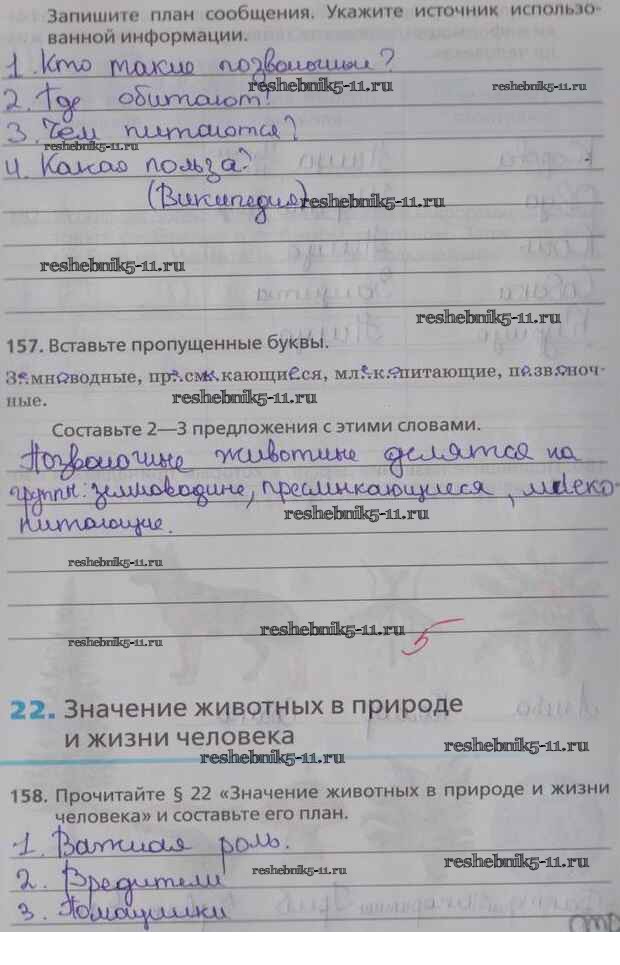 Запишите план сообщения. Укажите источник использо-
ванной информации.
1. Кто такие позвоночные?
2. Где обитают?
reshebnik5-11.ru
reshebnik5-11.ru
3. Чем питаются?
reshebnik5-11.ru
4. Какая польза?
(Википедия)
reshebnik5-11.ru
reshebnik5-11.ru
reshebnik5-11.ru
157. Вставьте пропущенные буквы.
Земноводные, пресмыкающиеся, млекопитающие, позвоноч-
ные.
reshebnik5-11.ru
Составьте 2—3 предложения с этими словами.
Позвоночные животные делятся на
группы: земноводные, пресмыкающиеся, млеко-
питающие.
reshebnik5-11.ru
reshebnik5-11.ru
reshebnik5-11.ru
reshebnik5-11.ru
5
22. Значение животных в природе
и жизни человека
reshebnik5-11.ru
reshebnik5-11.ru
158. Прочитайте § 22 «Значение животных в природе и жизни
человека» и составьте его план.
1. Важная роль.
2. Вредители
reshebnik5-11.ru
reshebnik5-11.ru
3. Помощники
reshebnik5-11.ru